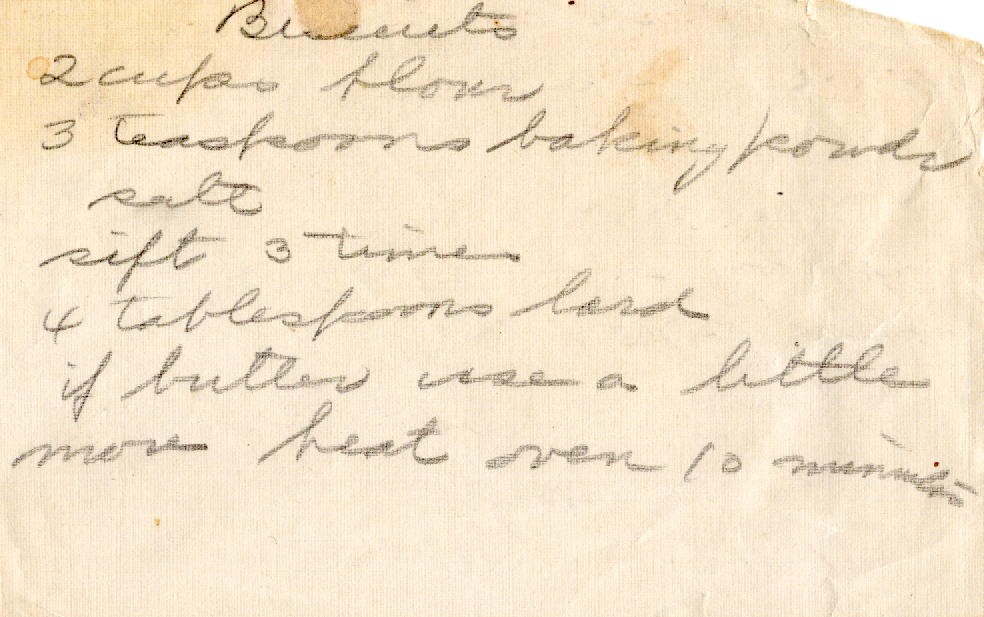 Biscuits
2 cups flour
3 teaspoons baking powder
salt
sift 3 times
4 tablespoons lard
if butter use a little
more heat oven 10 minutes